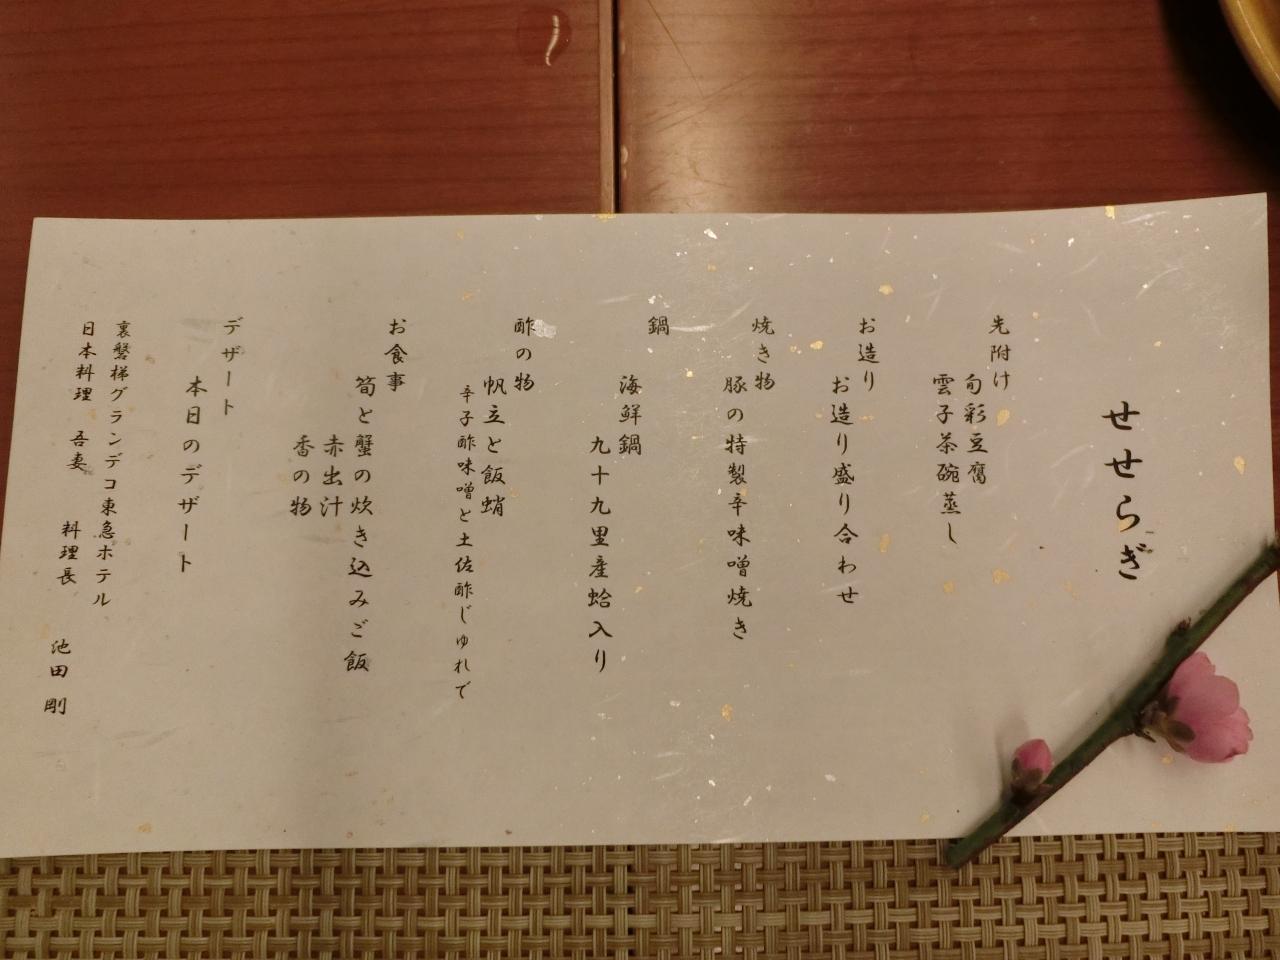 せせらぎ
先附け
旬彩豆腐
雲子茶碗蒸し
お造り
お造り盛り合わせ
焼き物
豚の特製辛味噌焼き
鍋
海鮮鍋
九十九里産蛤入り
酢の物
帆立と飯蛸
辛子酢味噌と土佐酢じゅれで
お食事
筍と蟹の炊き込みご飯
赤出汁
香の物
デザート
本日のデザート
裏磐梯グランデコ東急ホテル
日本料理 吾妻 料理長 池田 剛